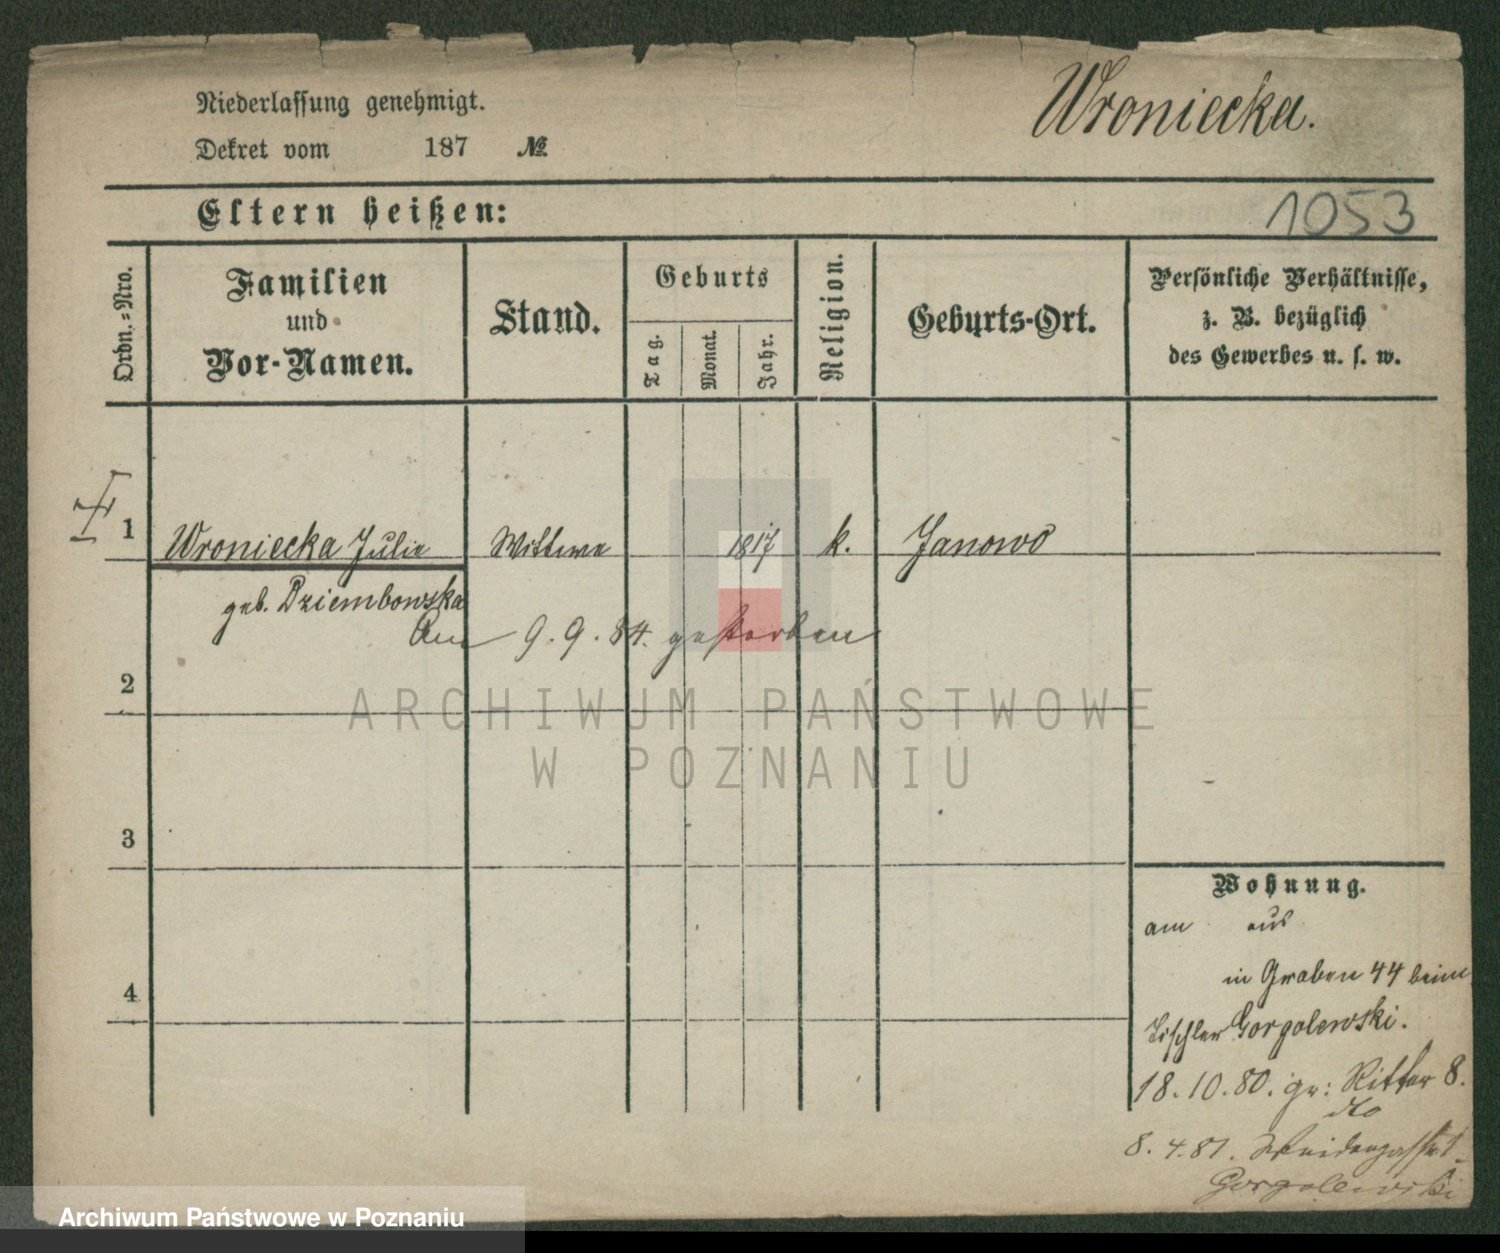 Niederlassung genehmigt.
Dekret vom 187 №
Wroniecka.
Eltern heißen:
1053
Ordn.-Nro.
Familien
und
Vor-Namen.
Stand.
Geburts
Tag.
Monat.
Jahr.
Religion.
Geburts-Ort.
Persönliche Verhältnisse,
z. B. bezüglich
des Gewerbes u. s. w.
1 Wroniecka Julie Wittwe 1817 k. Janowo
geb. Dziembowska
Am 9.9.84. gestorben
2
3
4
Wohnung.
am aus
in Graben 44 beim
Tischler Gorgolewski.
18.10.80. gr: Ritter 8.
dto
8.4.81. Weidengasse 1
Gorgolewski
ARCHIWUM PAŃSTWOWE
W POZNANIU
Archiwum Państwowe w Poznaniu